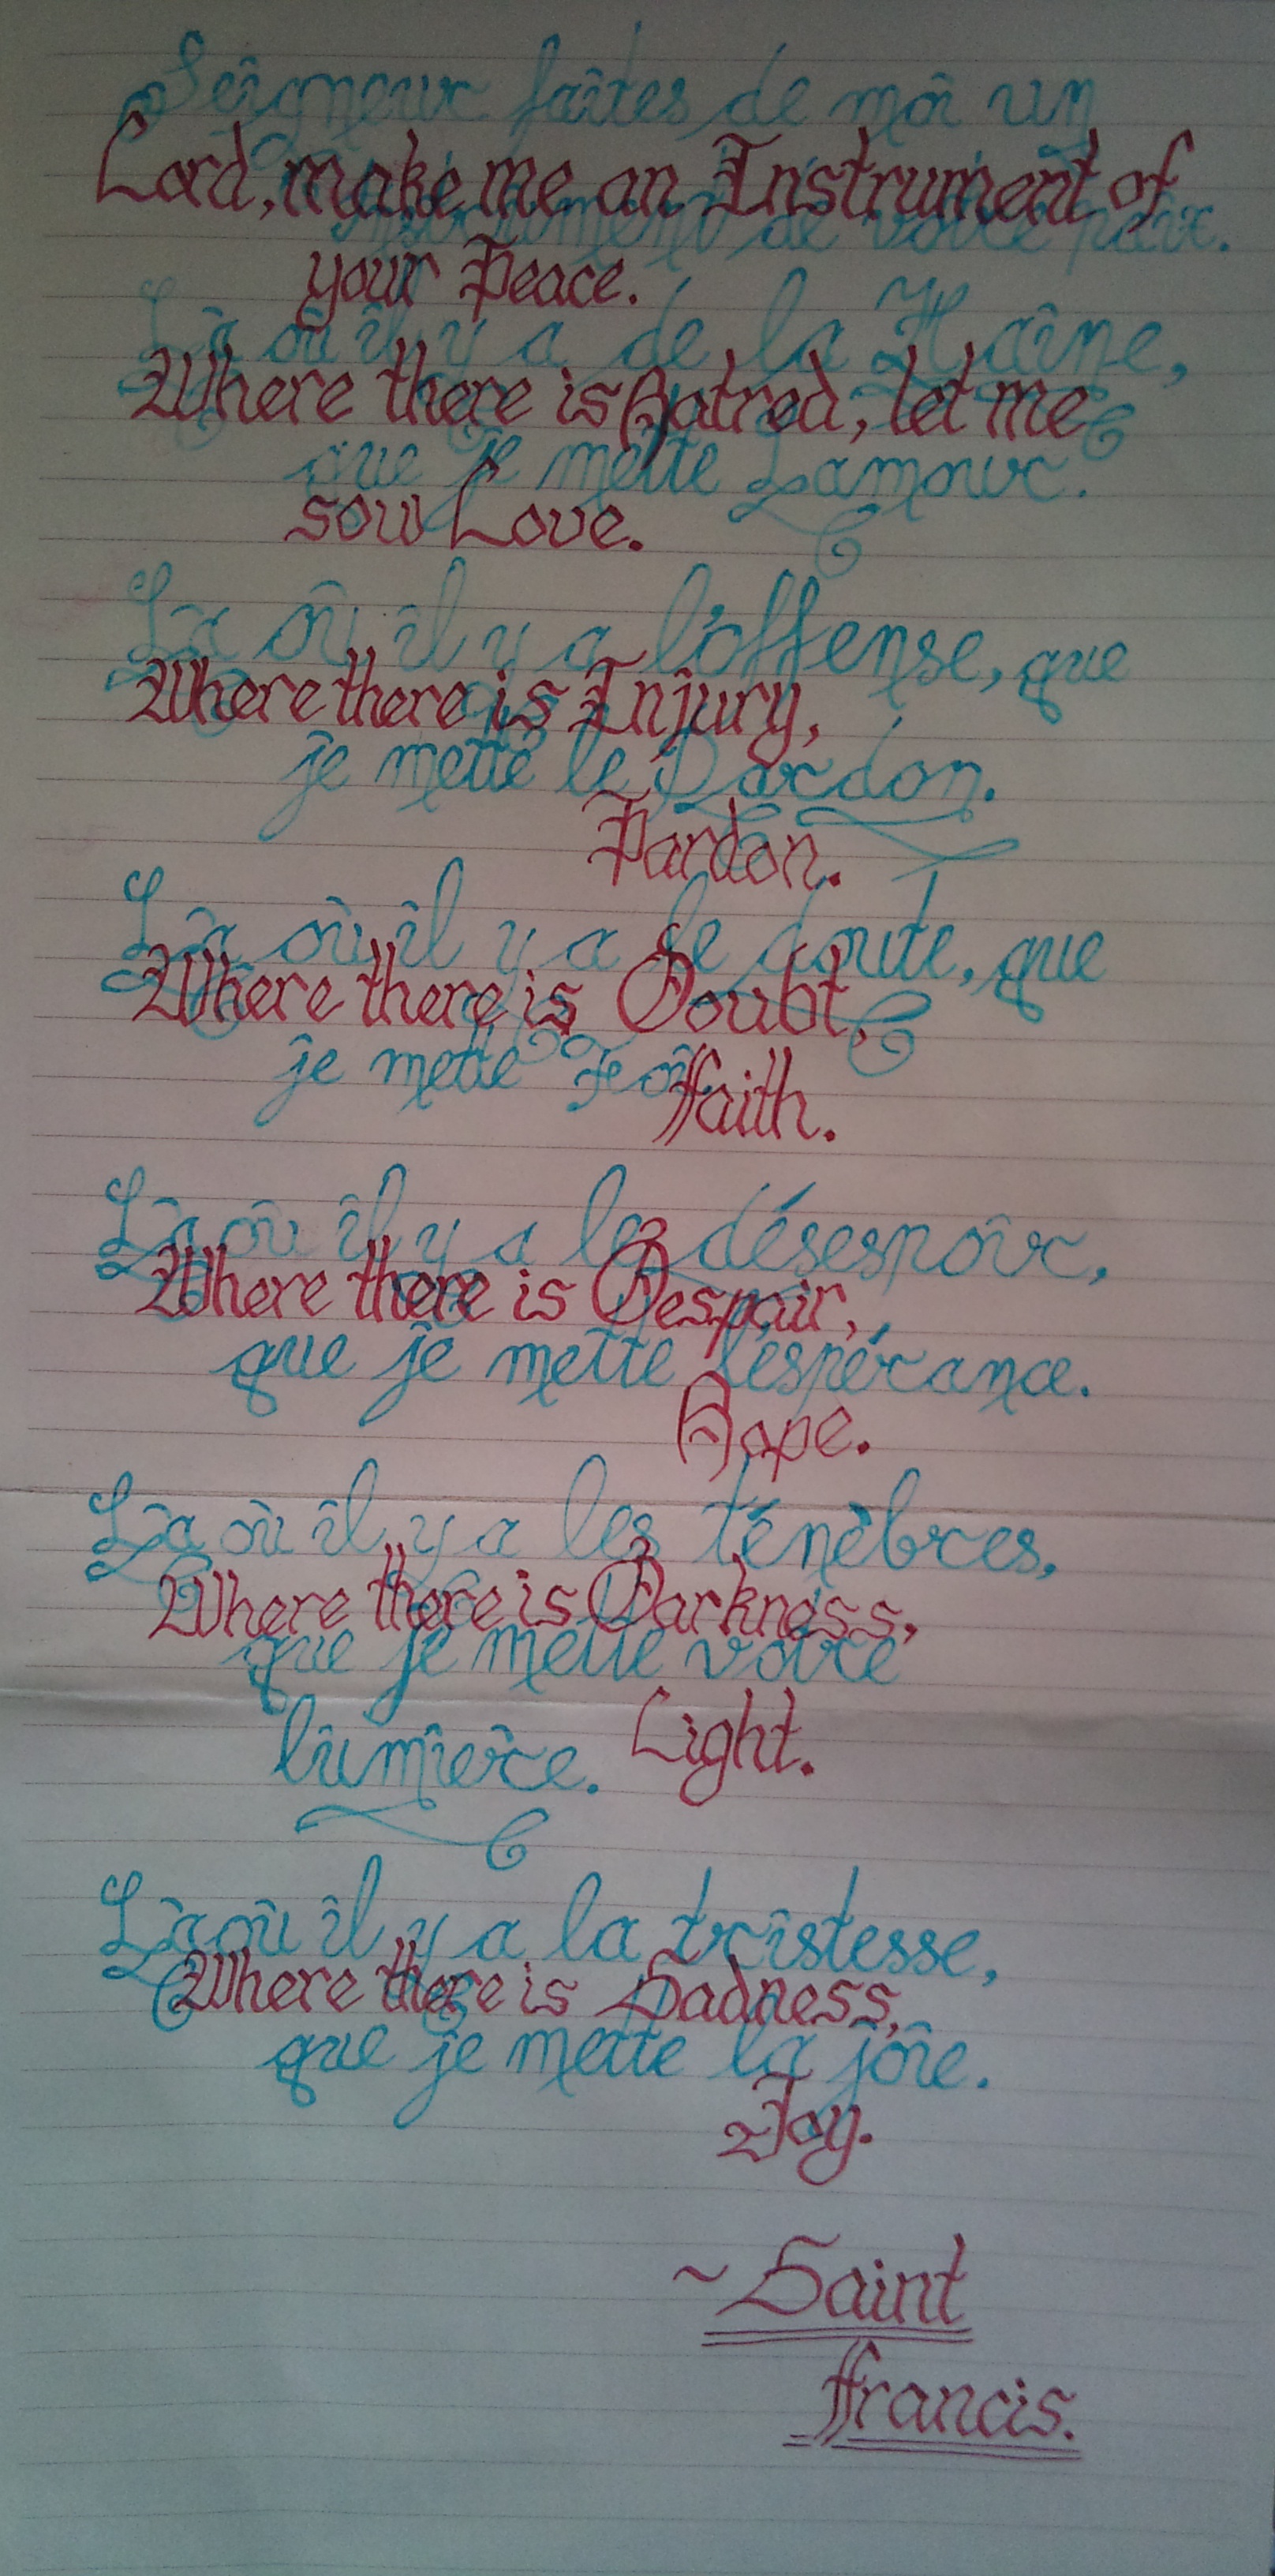 Seigneur faites de moi un
Lord, make me an Instrument of
instrument de votre paix.
your Peace.
Là où il y a de la Haine,
Where there is Hatred, let me
que je mette Lamour.
sow Love.
Là où il y a l'offense, que
Where there is Injury,
je mette le Pardon.
Pardon.
Là où il y a le doute, que
Where there is Doubt,
je mette Foi.
Faith.
Là où il y a le désespoir,
Where there is Despair,
que je mette l'espérance.
Hope.
Là où il y a les ténèbres,
Where there is Darkness,
que je mette votre
lumière. Light.
Là où il y a la tristesse,
Where there is Sadness,
que je mette la joie.
Joy.
~ Saint
Francis.